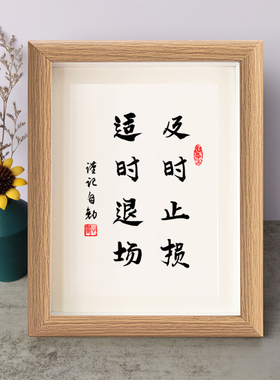 及时止损
适时退场
谨记自勉